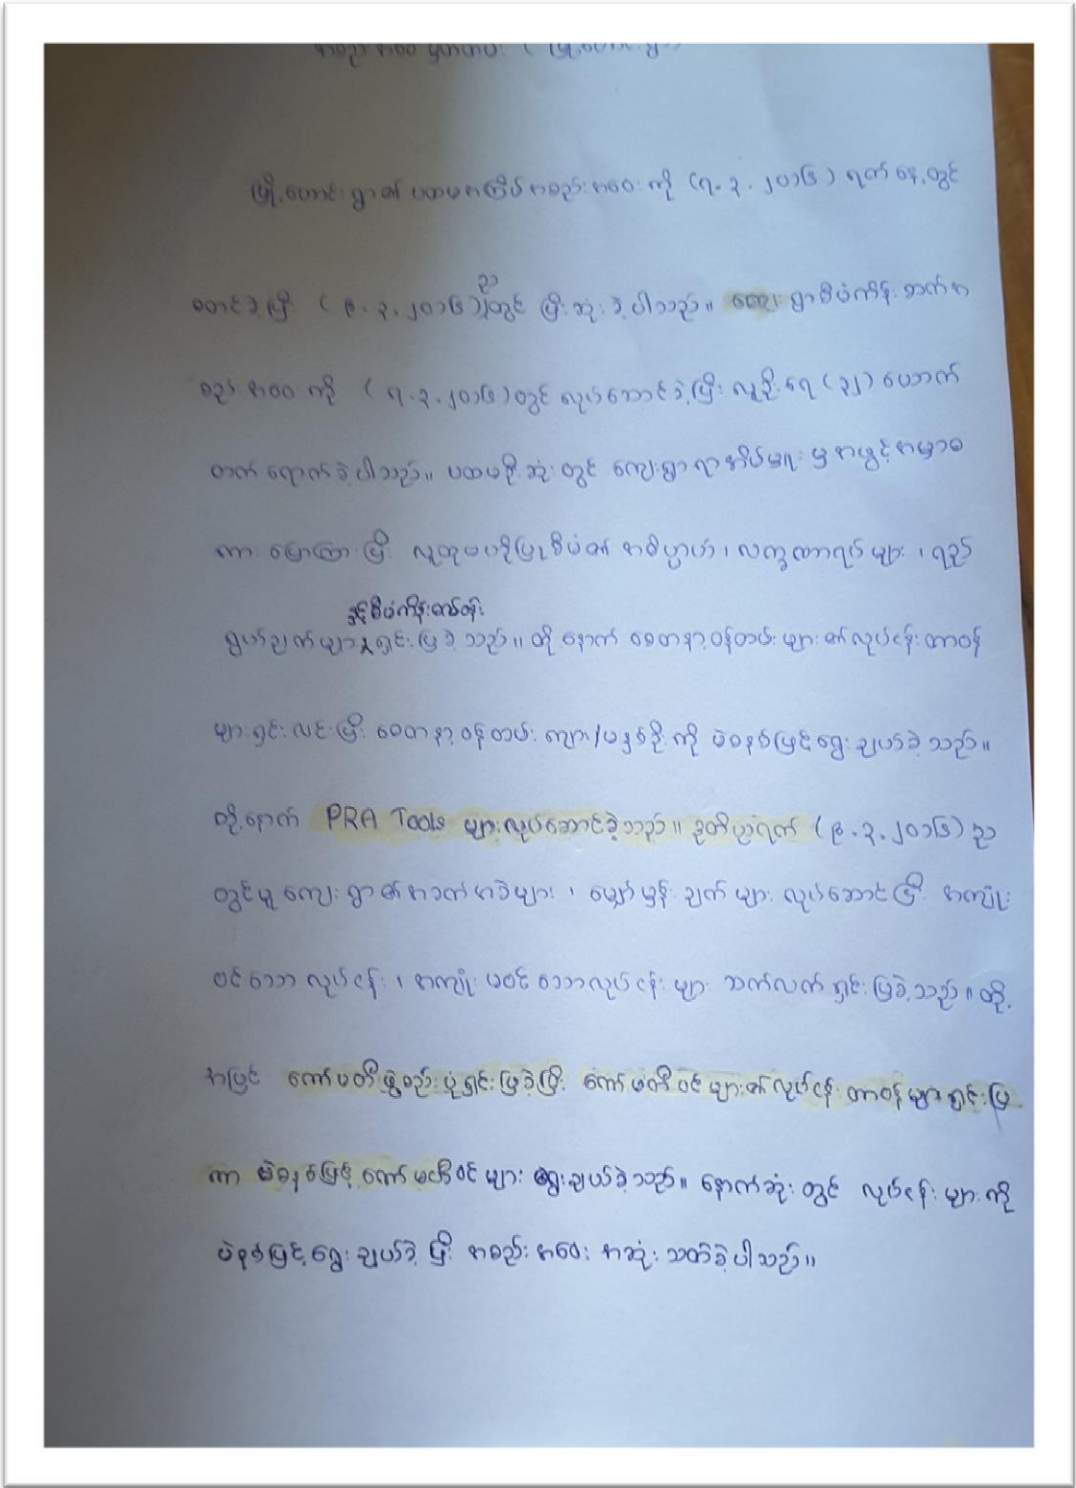 အစည်းအဝေးမှတ်တမ်း ( မြို့ဟောင်းရွာ
မြို့ဟောင်းရွာ၏ ပထမအကြိမ်အစည်းအဝေးကို (၇.၃.၂၀၁၆) ရက်နေ့တွင်
စတင်ခဲ့ပြီး (၉.၃.၂၀၁၆)ည တွင် ပြီးဆုံးခဲ့ပါသည်။ ကျေးရွာစီမံကိန်း
စည်းအဝေးကို (၇.၃.၂၀၁၆)တွင် လုပ်ဆောင်ခဲ့ပြီး လူဦးရေ (၃၂) ယောက်
တက်ရောက်ခဲ့ပါသည်။ ပထမဦးဆုံးတွင် ကျေးရွာရာအိမ်မှူးမှ အဖွင့်အမှာစ
ကား ပြောကြားပြီး လူထုဗဟိုပြုစီမံ၏ အဓိပ္ပာယ်၊ လက္ခဏာရပ်များ ၊ ရည်
ရွယ်ချက်များနှင့်စီမံကိန်း ရှင်းပြခဲ့သည်။ ထို့နောက် စေတနာ့ဝန်ထမ်းများ၏လုပ်ငန်းတာဝန်
များရှင်းလင်းပြီး စေတနာ့ဝန်ထမ်း ကျား/မနှစ်ဦးကို မဲစနစ်ဖြင့်ရွေးချယ်ခဲ့သည်။
ထို့နောက် PRA Tools များလုပ်ဆောင်ခဲ့သည်။ ဒုတိယရက် (၉.၃.၂၀၁၆) ည
တွင်မူ ကျေးရွာ၏အခက်အခဲများ ၊ မျှော်မှန်းချက်များ လုပ်ဆောင်ပြီး အကျုံး
ဝင်သောလုပ်ငန်း ၊ အကျုံးမဝင်သောလုပ်ငန်းများ ဆက်လက်ရှင်းပြခဲ့သည်။ ထို့
အပြင် ကော်မတီဖွဲ့စည်းပုံရှင်းပြခဲ့ပြီး ကော်မတီဝင်များ၏လုပ်ငန်းတာဝန်များရှင်းပြ
ကာ မဲစနစ်ဖြင့် ကော်မတီဝင်များ ရွေးချယ်ခဲ့သည်။ နောက်ဆုံးတွင် လုပ်ငန်းများကို
မဲနစ်ဖြင့်ရွေးချယ်ခဲ့ပြီး အစည်းအဝေး အဆုံးသတ်ခဲ့ပါသည်။